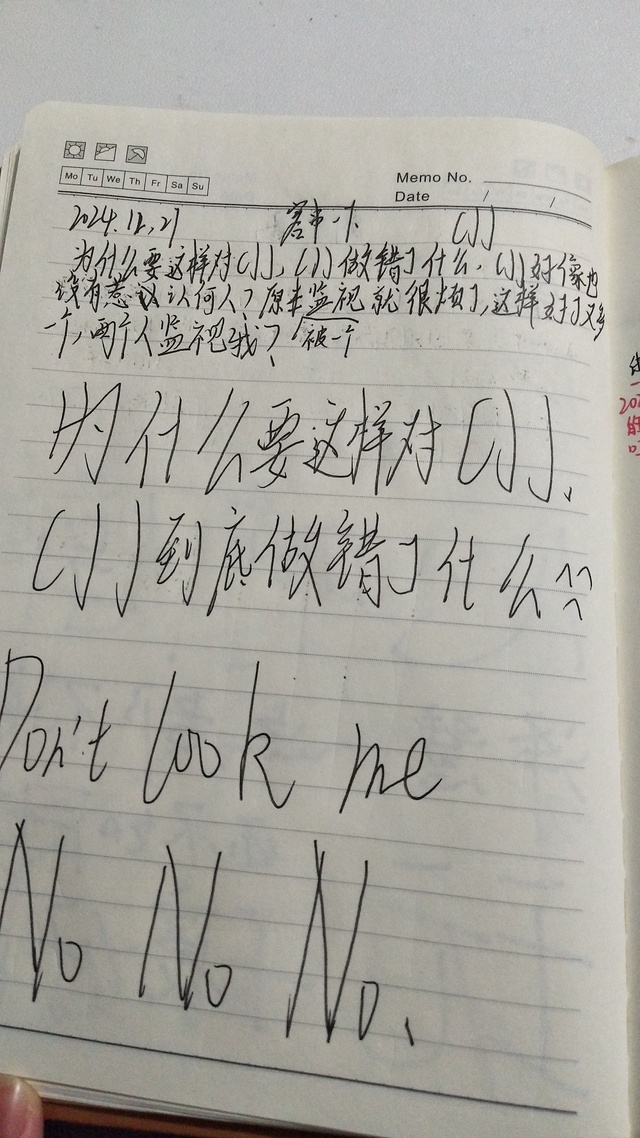 Mo Tu We Th Fr Sa Su
Memo No.
Date / /
2024.12.21 CJJ
为什么要这样对CJJ, CJJ做错了什么, CJJ好像也
没有惹议认何人? 原来监视就很烦了,这样对于又多
一个,两个人监视我? 被一个
为什么要这样对CJJ、
CJJ到底做错了什么??
Don't look me
No No No.